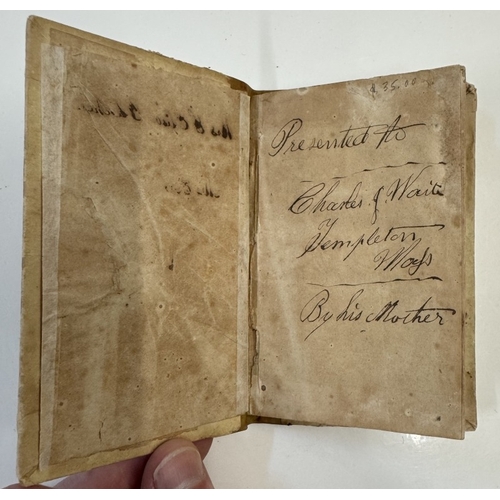 $ 35.00
Presented to
Charles J Waite
Templeton
Mass
By his Mother